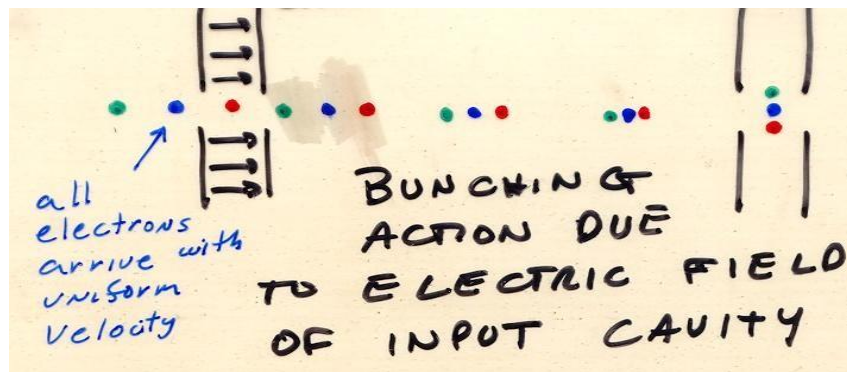 all
electrons
arrive with
uniform
velocity
BUNCHING
ACTION DUE
TO ELECTRIC FIELD
OF INPUT CAVITY